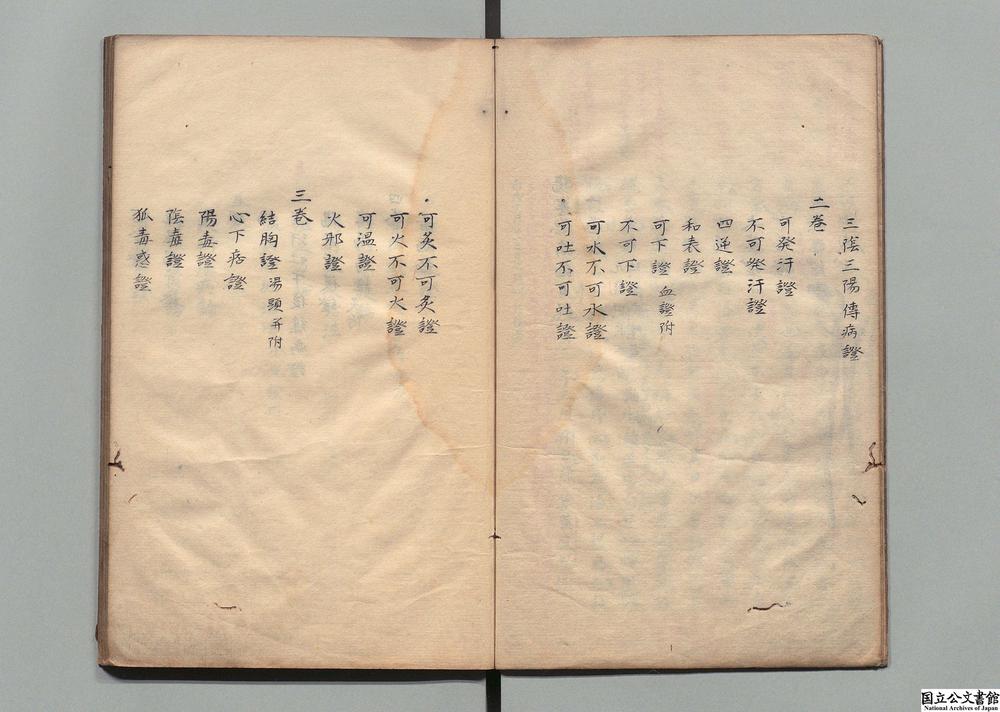 三陰三陽傳病證
二巻
可発汗證
不可発汗證
四逆證
和表證
可下證 血證附
不可下證
可水不可水證
可吐不可吐證
可灸不可灸證
可火不可火證
可温證
火邪證
三巻
結胸證 湯頭并附
心下痞證
陽毒證
陰毒證
狐毒惑證
国立公文書館
National Archives of Japan